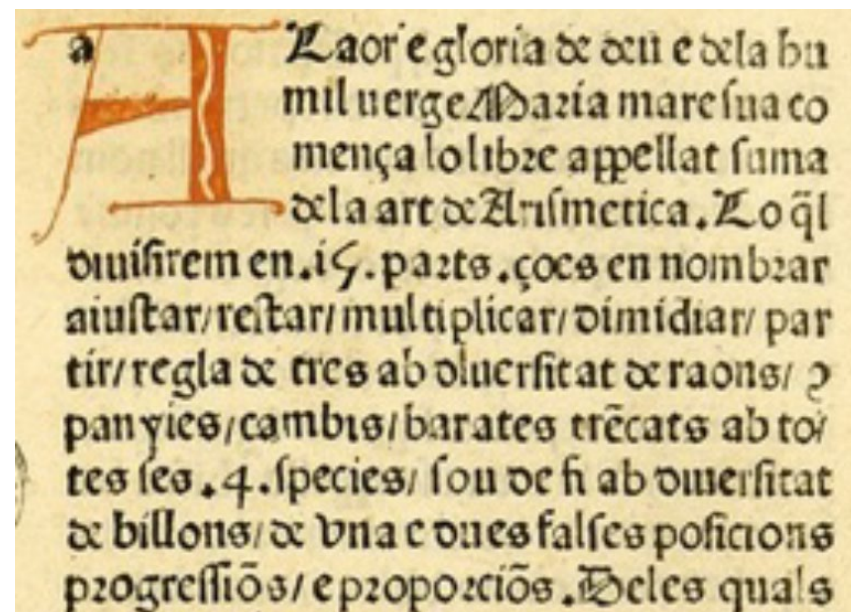 a Laor e gloria de deu e dela hu
mil uerge Maria mare sua co
mença lo libre appellat suma
dela art de Arismetica. Lo q̄l
diuisirem en .i5. parts .ço es en nombrar
aiustar/ restar/ multiplicar/ dimidiar/ par
tir/ regla de tres ab diuersitat de raons/ ꝯ
panyies/ cambis/ barates trēcats ab to/
tes ses .4. species/ sou de fi ab diuersitat
de billons/ de vna e dues falses posicions
progressiōs/ e proporciōs. Deles quals